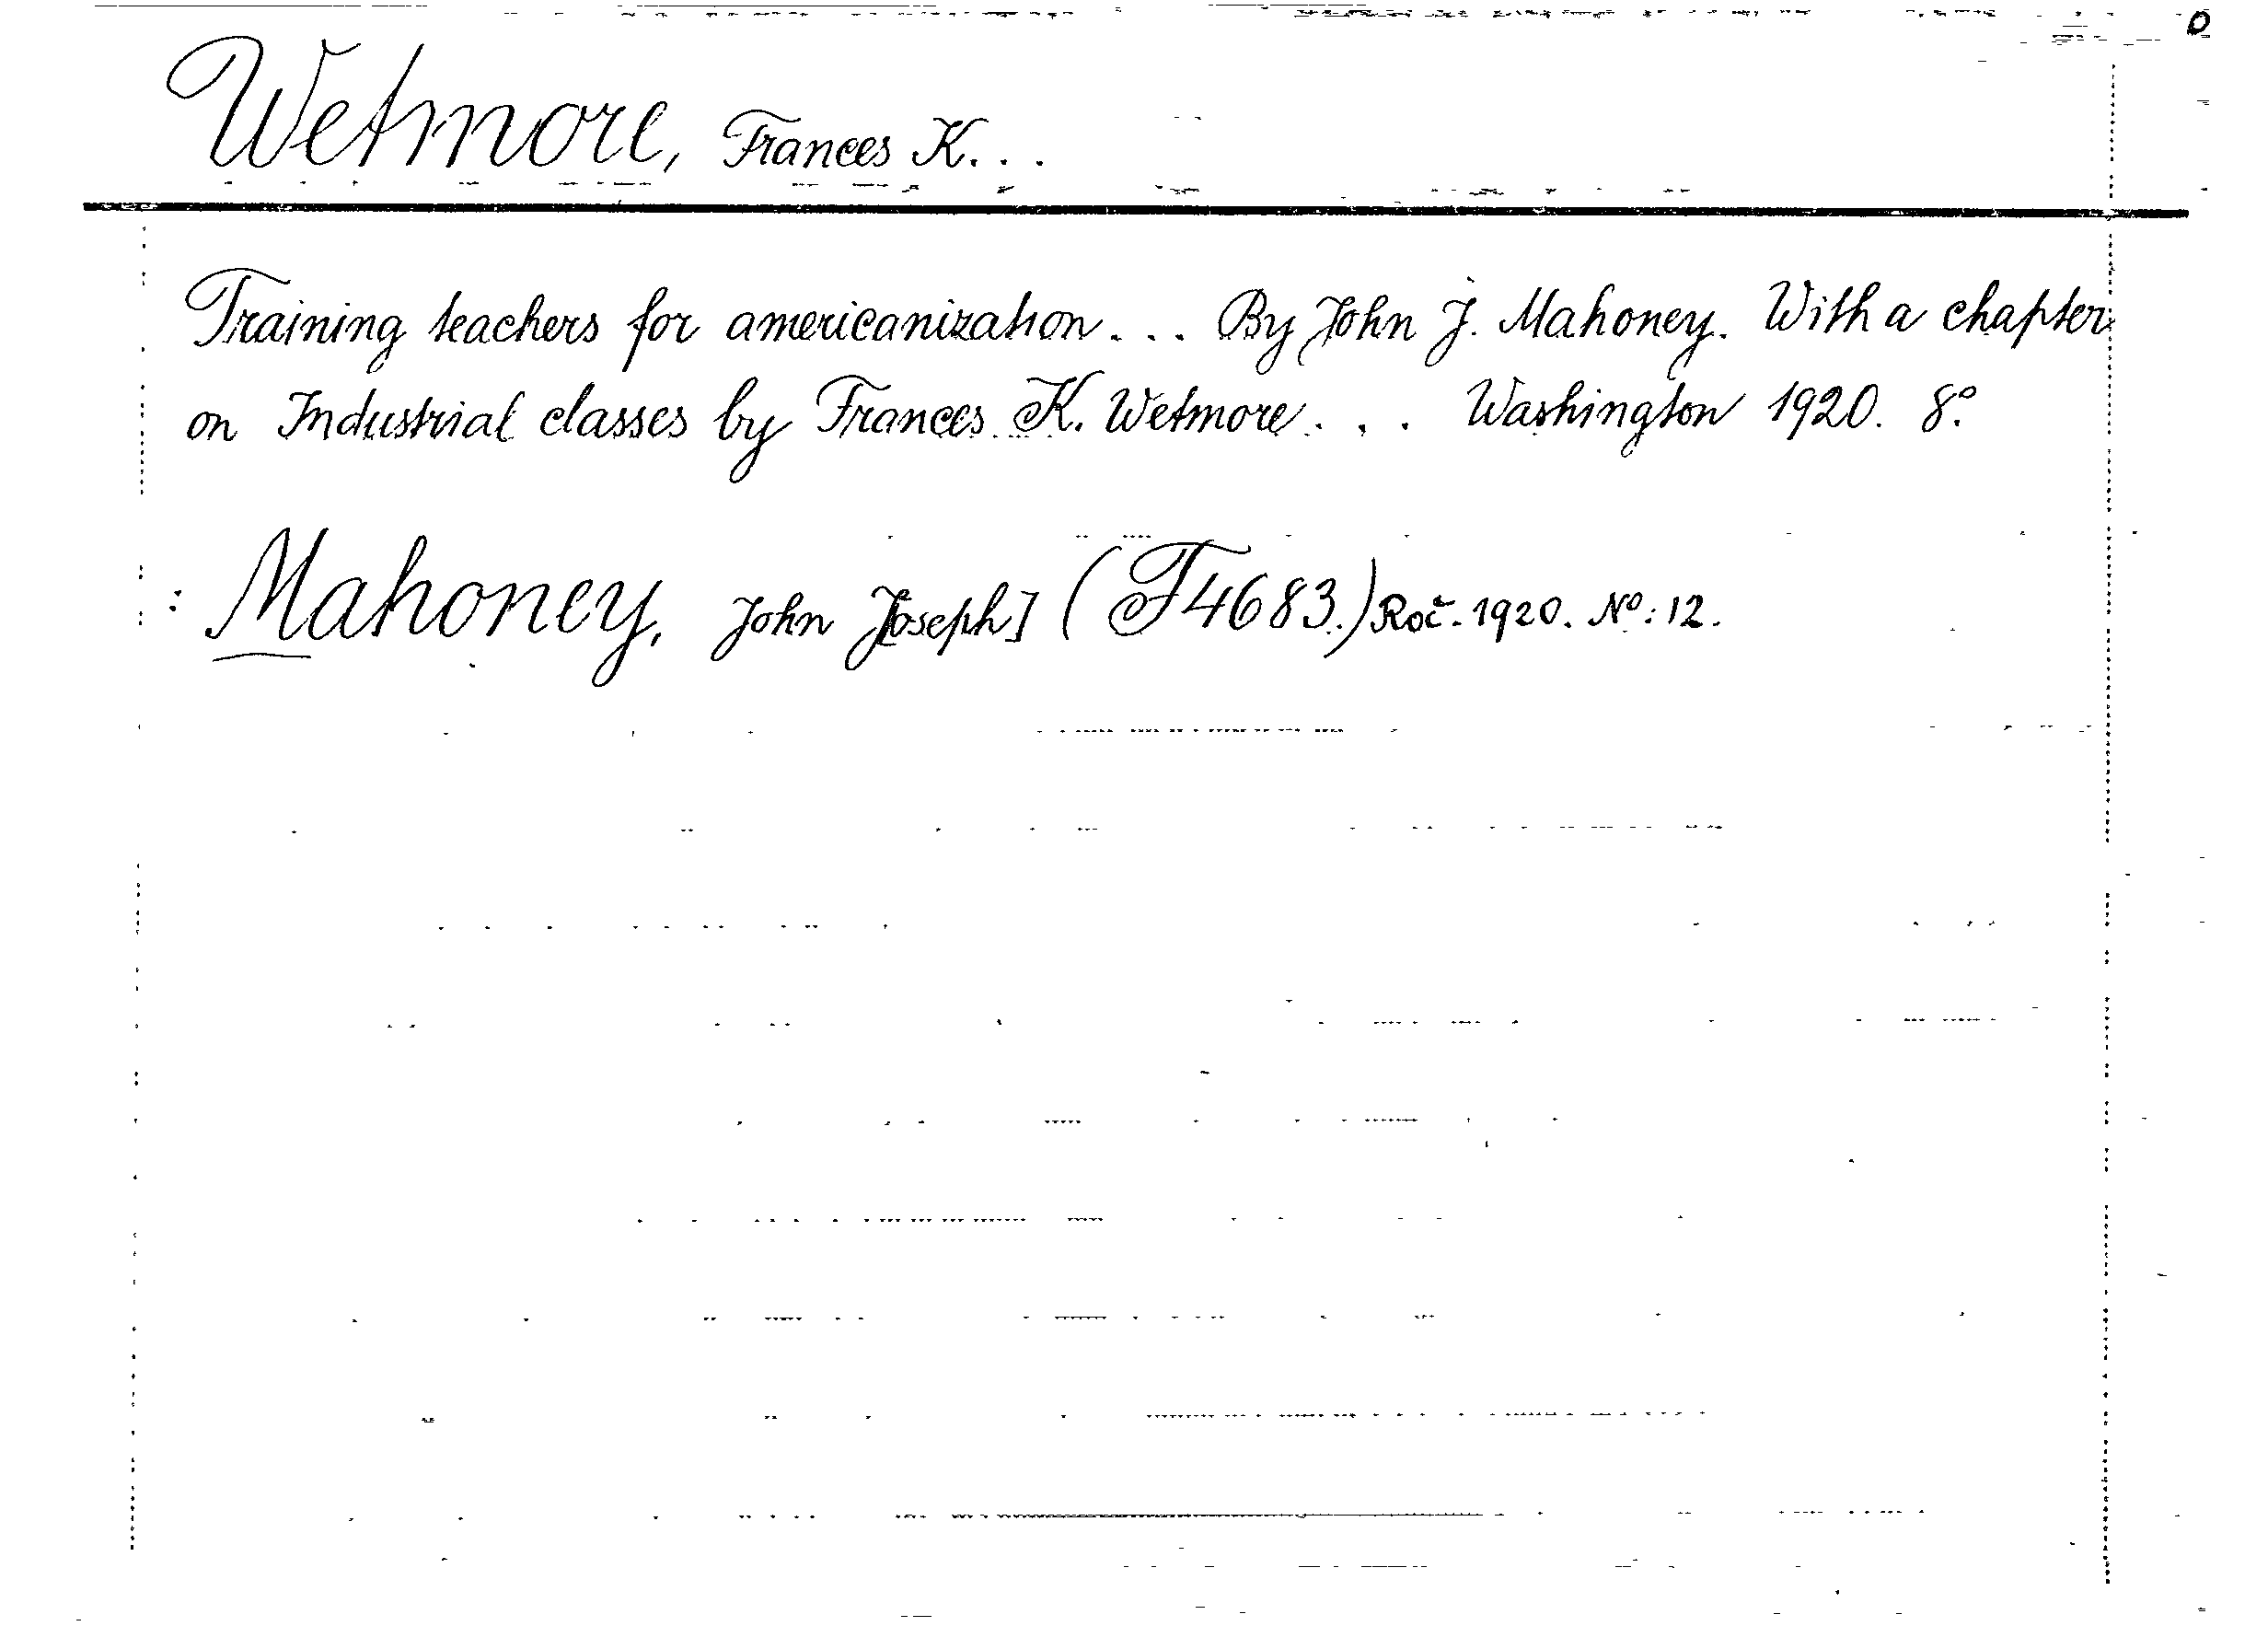 0
Wetmore, Frances K...
Training teachers for americanization... By John J. Mahoney. With a chapter
on Industrial classes by Frances K. Wetmore... Washington 1920. 8°.
: Mahoney, John J[oseph] (F 4683.) Roč. 1920. No: 12.